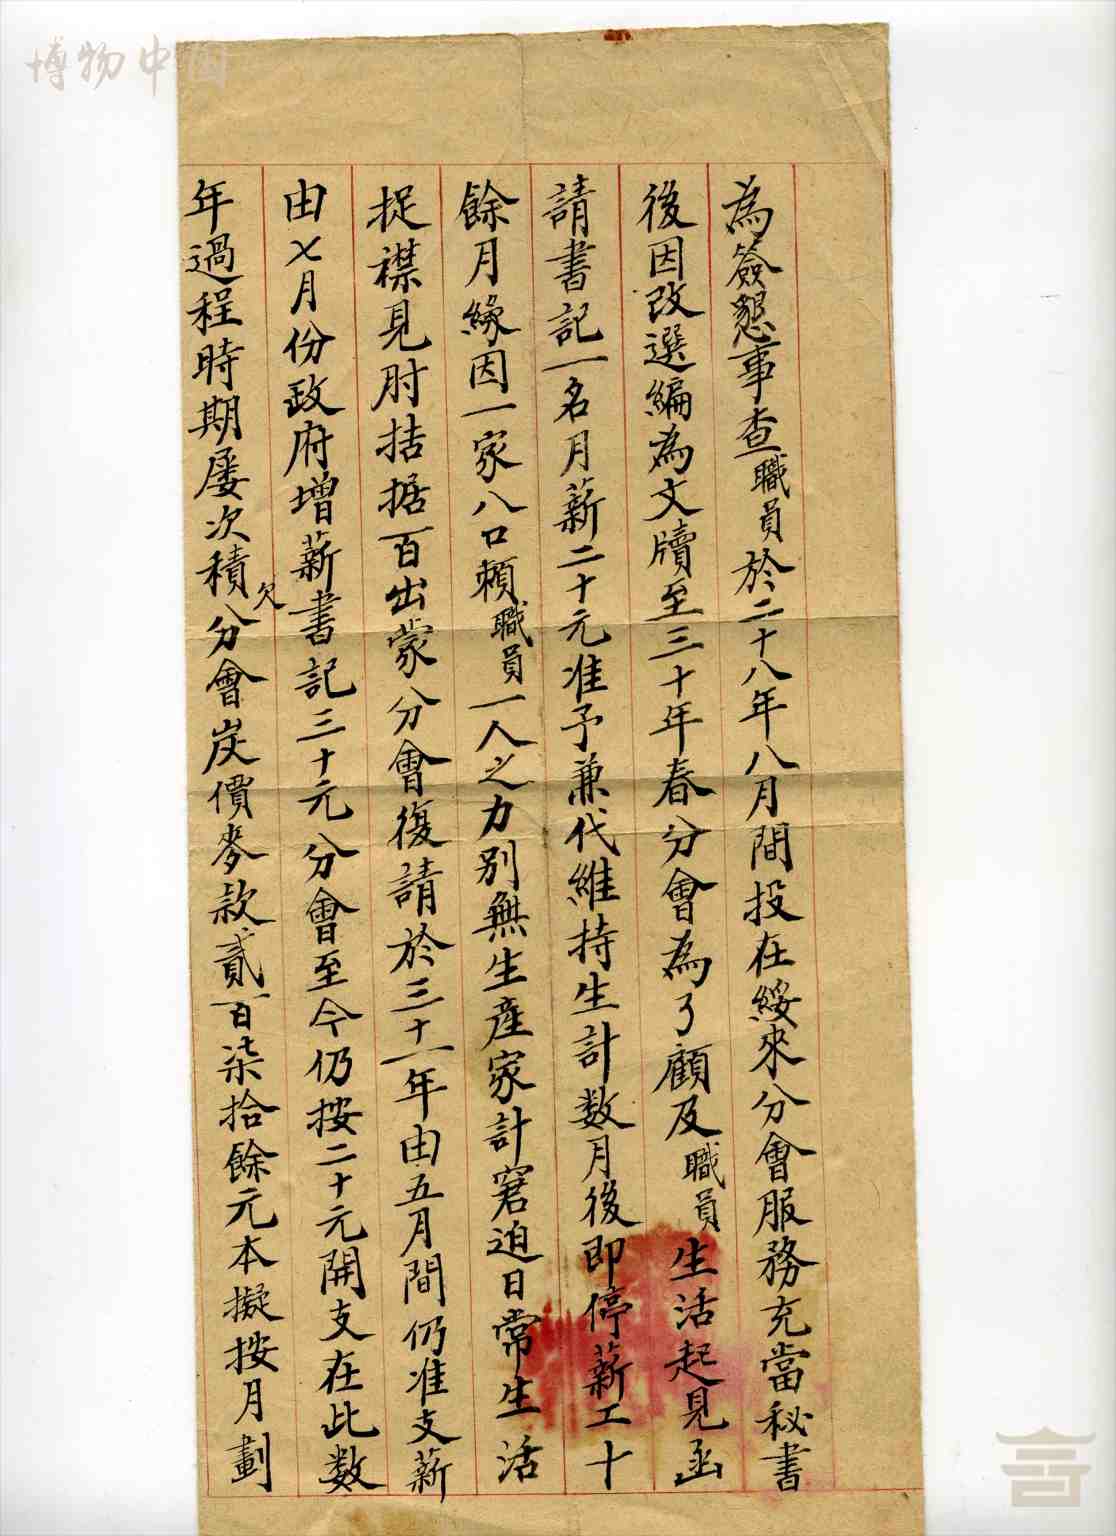 博物中国
為簽懇事查職員於二十八年八月間投在綏來分會服務充當秘書
後因改選編為文牘至三十年春分會為了顧及職員生活起見函
請書記一名月薪二十元准予兼代維持生計数月後即停薪工十
餘月緣因一家八口頼職員一人之力别無生産家計窘迫日常生活
捉襟見肘拮据百出蒙分會復請於三十一年由五月間仍准支薪
由七月份政府增薪書記三十元分會至今仍按二十元開支在此数
年過程時期屡次積欠分會炭價麥款貳百柒拾餘元本擬按月劃